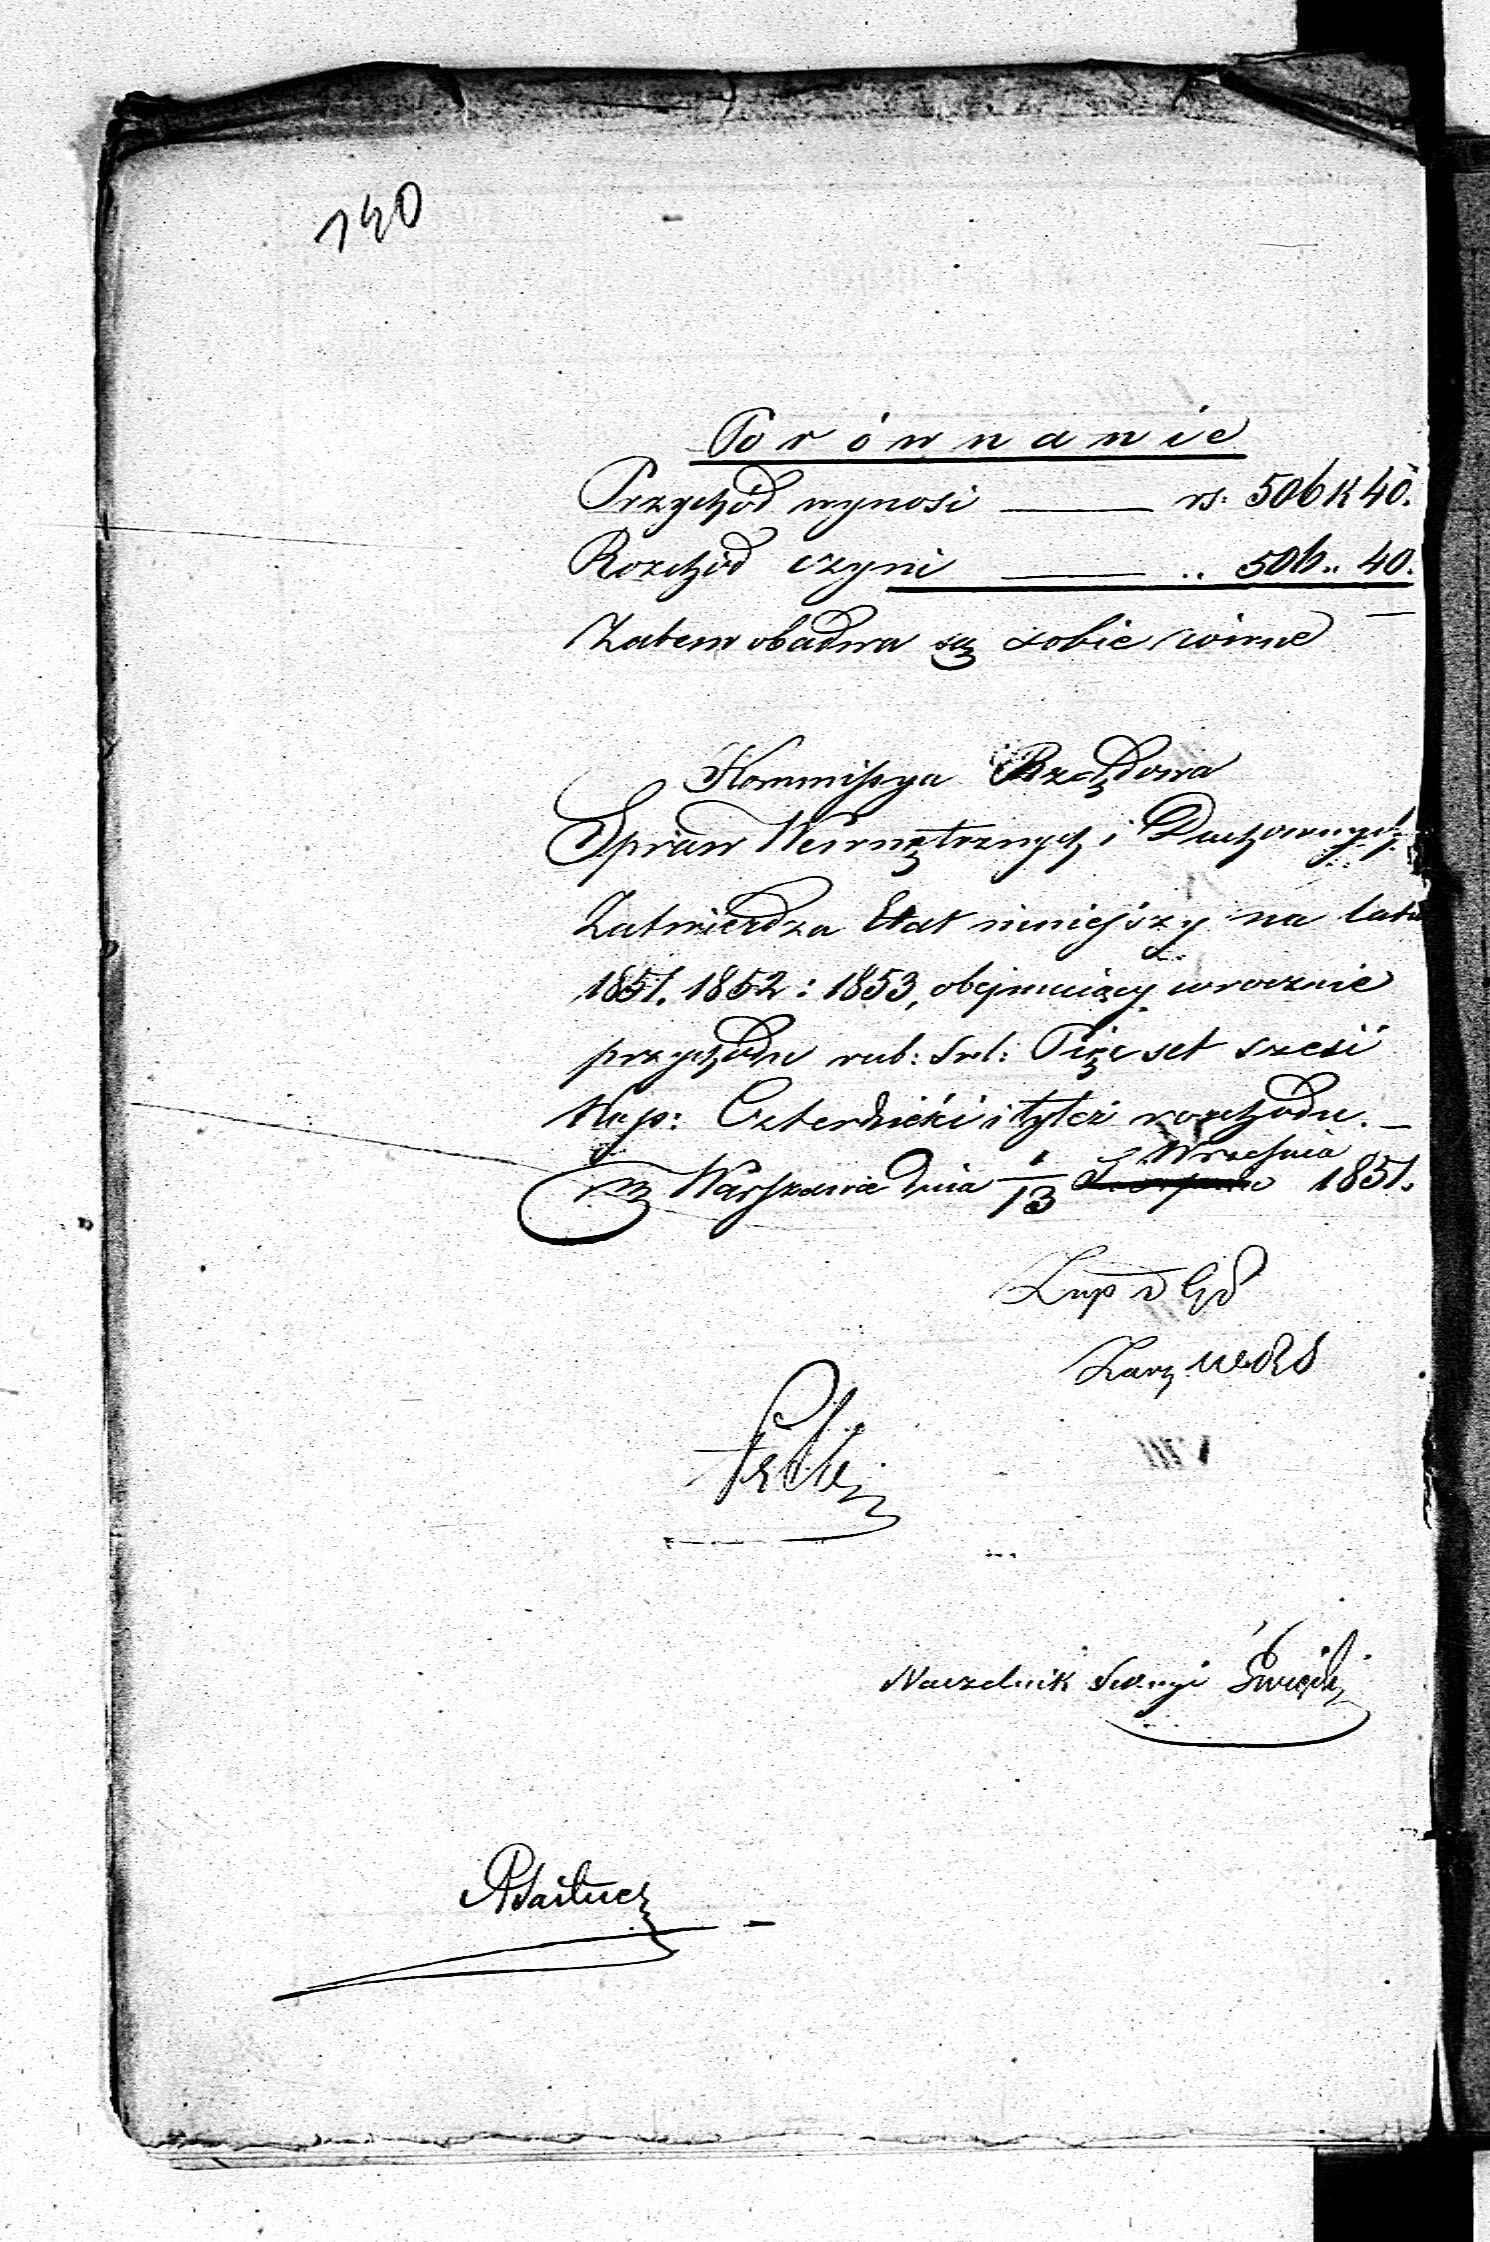 140
Porównanie
Przychód wynosi — rs: 506 k 40.
Rozchód czyni — „ 506 „ 40.
Zatem obadwa są sobie równe
Kommissya Rządowa
Spraw Wewnętrznych i Duchownych
Zatwierdza Etat niniejszy na lata
1851. 1852 i 1853, obejmuiący w rocznie
przychodu rub: srl: Pięć set sześć
kop: Czterdzieści i tyleż rozchodu. —
w Warszawie dnia 1/13 Września 1851.
Naczelnik Sekcyi Święcki